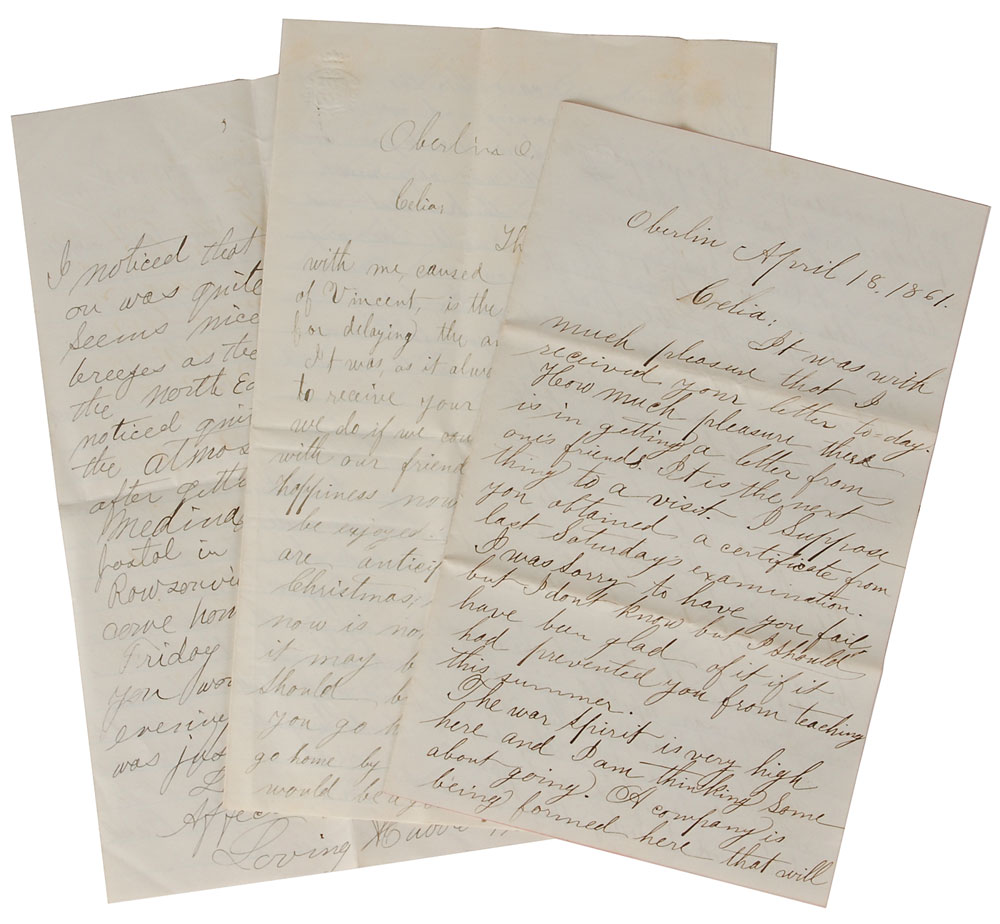 I noticed that
on was quite
seems nice
breezes as the
the north Ea
noticed qui
the atmos
after gette
Medina
postal in
Rowsonvi
come hom
Friday
you wou
evening
was jus
Affec
Loving
Oberlin O.
Celia;
Th
with me, caused
of Vincent, is the
for delaying the an
It was, as it alwa
to receive your
we do if we can
with our friend
happiness now
be enjoyed.
are anticip
Christmas,
now is no,
it may b
should b
you go h
go home by
would be
Oberlin April 18. 1861.
Celia:
It was with
much pleasure that I
received your letter to-day.
How much pleasure there
is in getting a letter from
ones friends. It is the next
thing to a visit. I Suppose
you obtained a certificate from
last Saturdays examination.
I was sorry to have you fail
but I dont know but I should
have been glad of it if it
had prevented you from teaching
this summer.
The war spirit is very high
here and I am thinking some
about going. A company is
being formed here that will